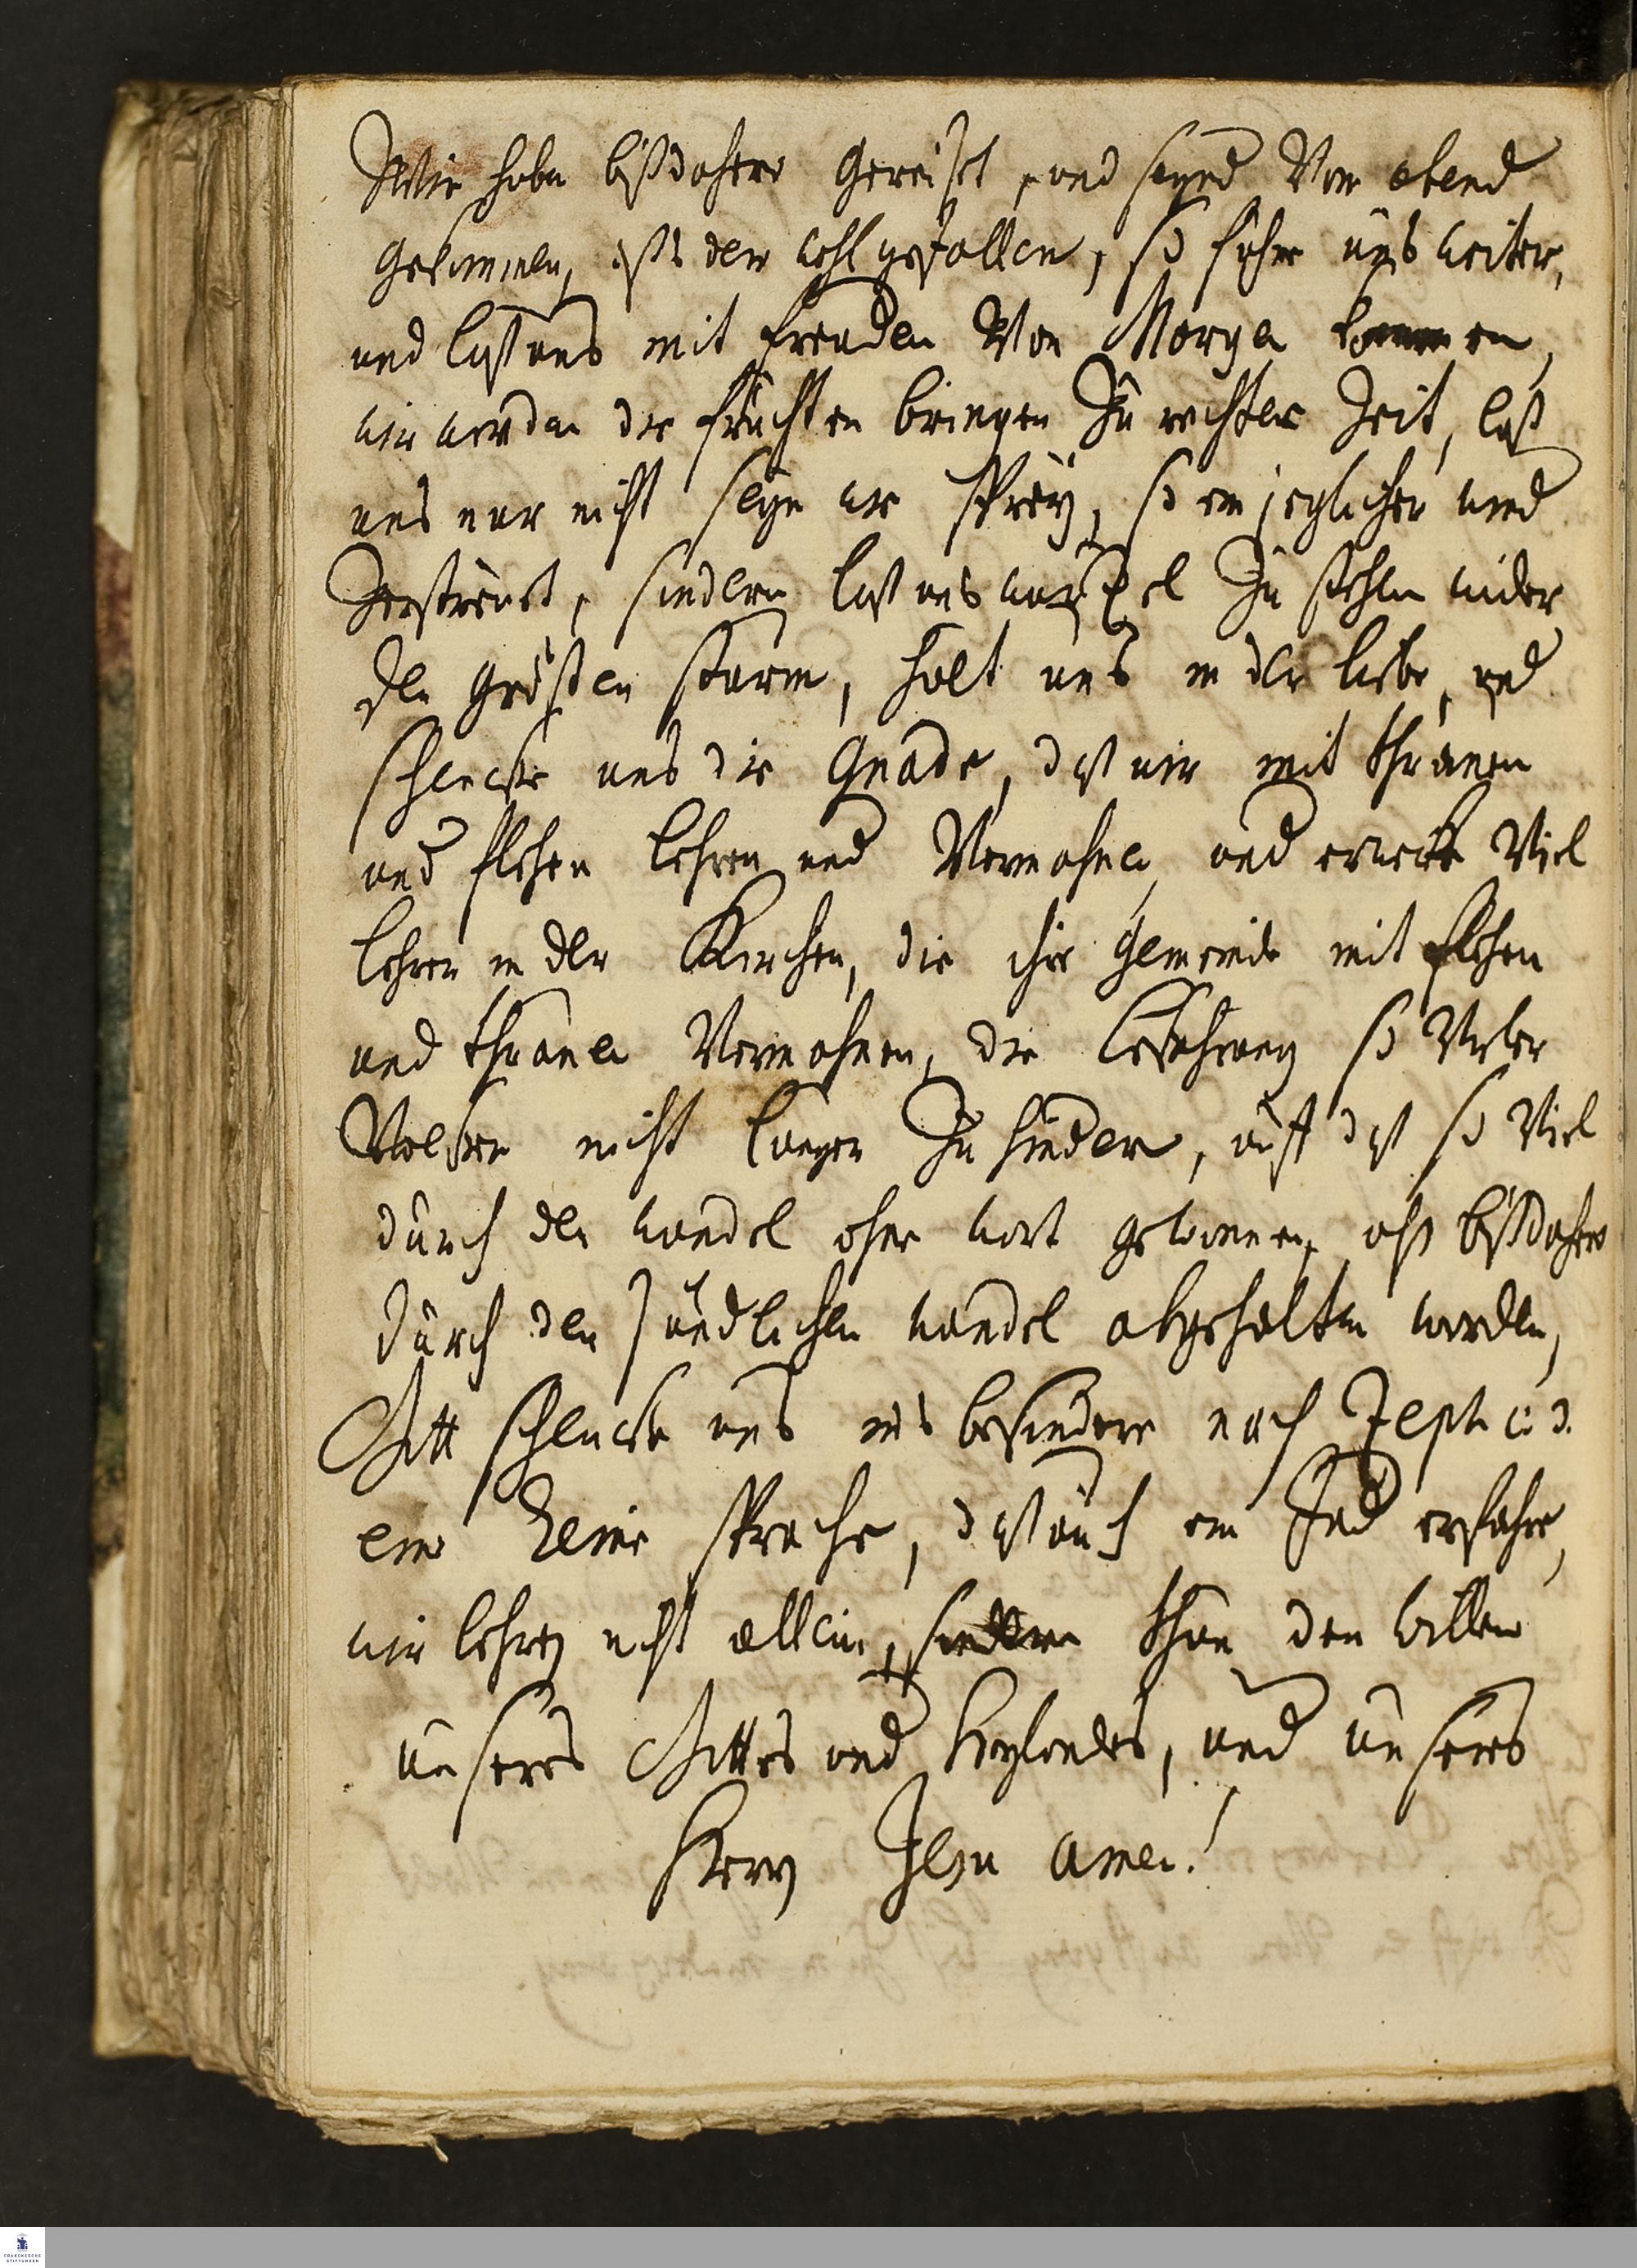 Wir haben bißdahero gereißet, und seynd Von abend
gekommen, ists dein wohlgefallen, so führe uns weiter,
und laß uns mit freuden Von Morgen kommen,
wir werden dir früchten bringen Zu rechter Zeit, laß
uns nur nicht seyn wie spreu, so ein jeglicher wind
Zerstreuet, sondern laß uns wurtzel Zu stehen wider
den grösten sturm, halt uns in der liebe, und
schencke uns die Gnade, daß wir mit thränen
und flehen lehren und Vermahnen, und erwecke Viel
lehrer in der Kirchen, die ihre Gemeinde mit flehen
und thränen Vermahnen, die bekehrung so Vieler
Völcker nicht länger Zu hindern, auff daß so Viel
durch den wandel ohne wort gewonnen, alß bißdahero
durch den sündlichen wandel abgehalten worden,
Gott schencke uns ins besondere nach Zeph. c. 3.
eine reine sprache, daß auch ein Jud erfahre,
wir lehren nicht allein, sondern thun den willen
unseres Gottes und heylandes, und unseres
Herrn Jesu amen!
FRANCKESCHE
STIFTUNGEN